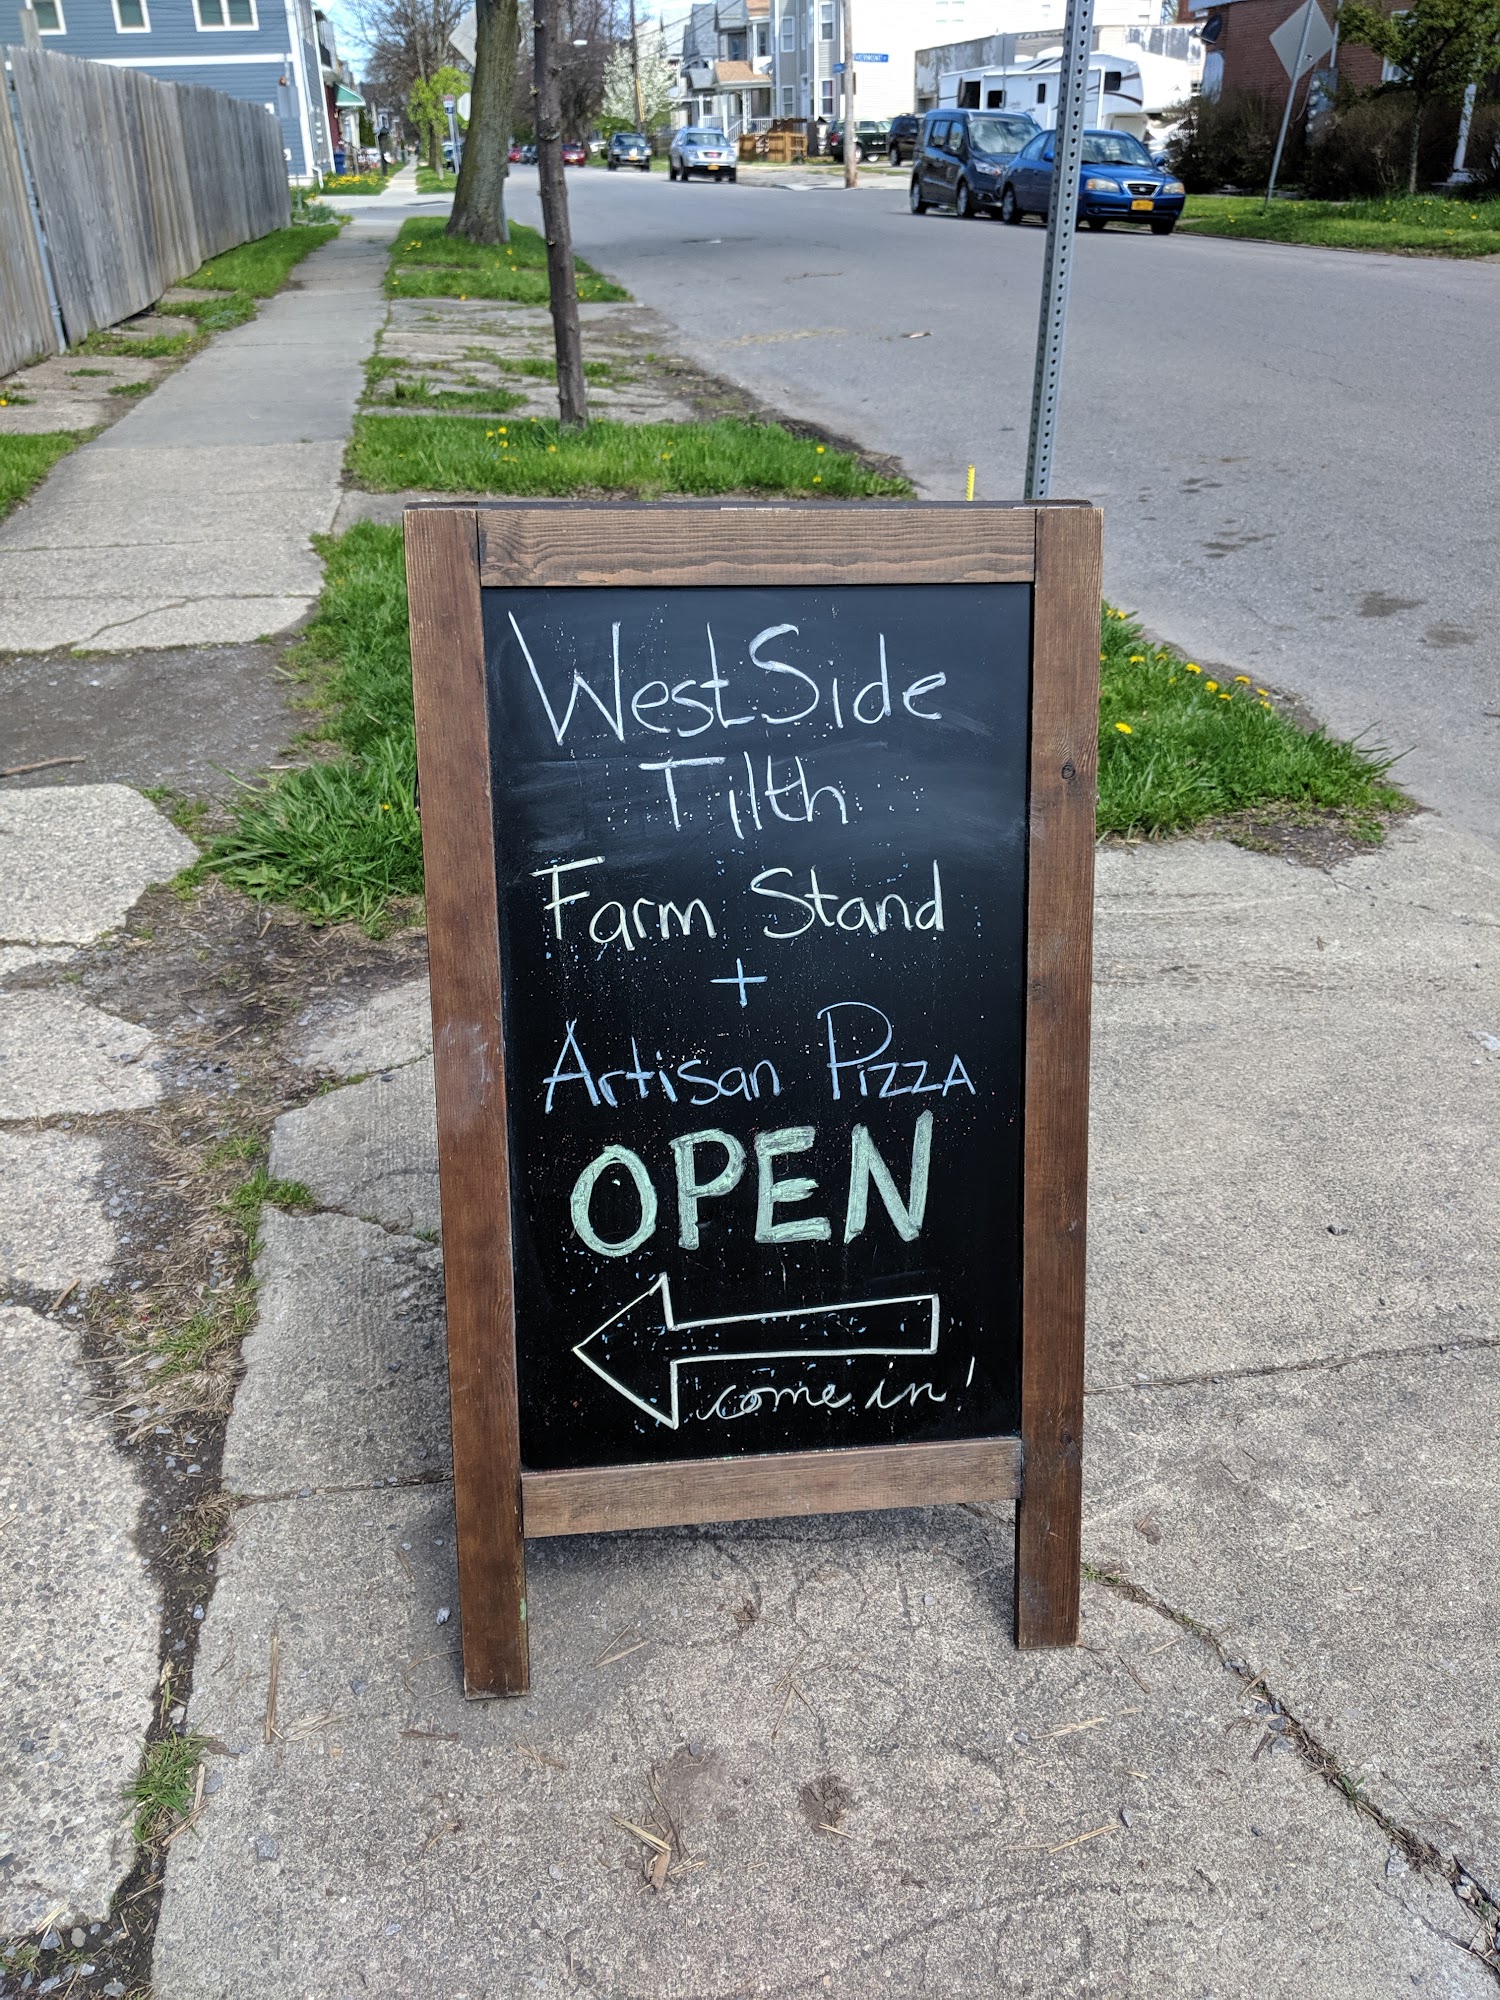 West Side
Tilth
Farm Stand
+
Artisan Pizza
OPEN
come in!